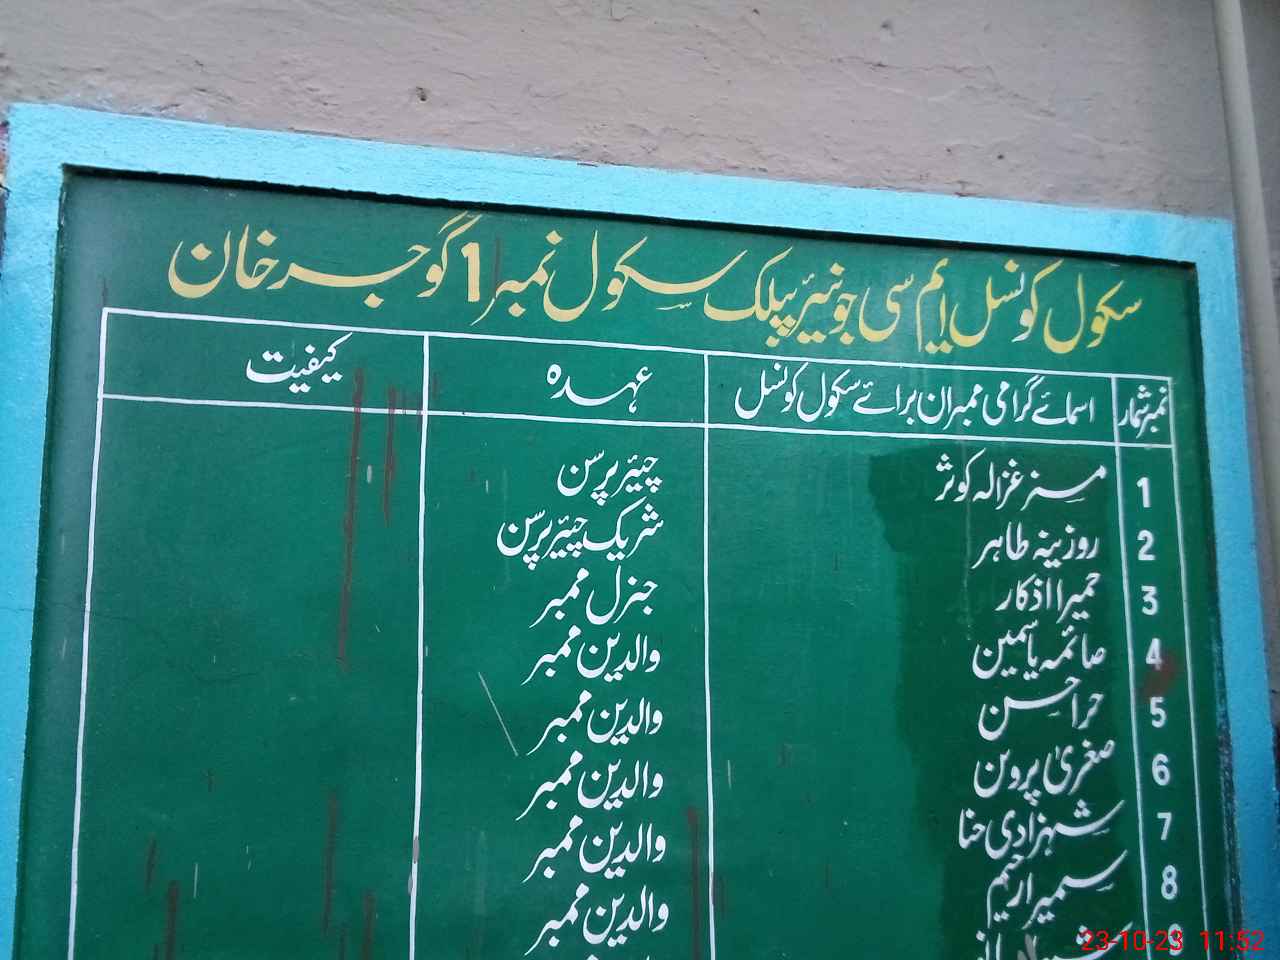 سکول کونسل ایم سی جونیئر پبلک سکول نمبر 1 گوجر خان
نمبر شمار اسمائے گرامی ممبران برائے سکول کونسل عہدہ کیفیت
1 مسز غزالہ کوثر چیئر پرسن
2 روزینہ طاہر شریک چیئر پرسن
3 حمیرا اذکار جنرل ممبر
4 صائمہ یاسمین والدین ممبر
5 حرا حسن والدین ممبر
6 صغریٰ پروین والدین ممبر
7 شہزادی حنا والدین ممبر
8 سمیرا رحیم والدین ممبر
9
23-10-23 11:52